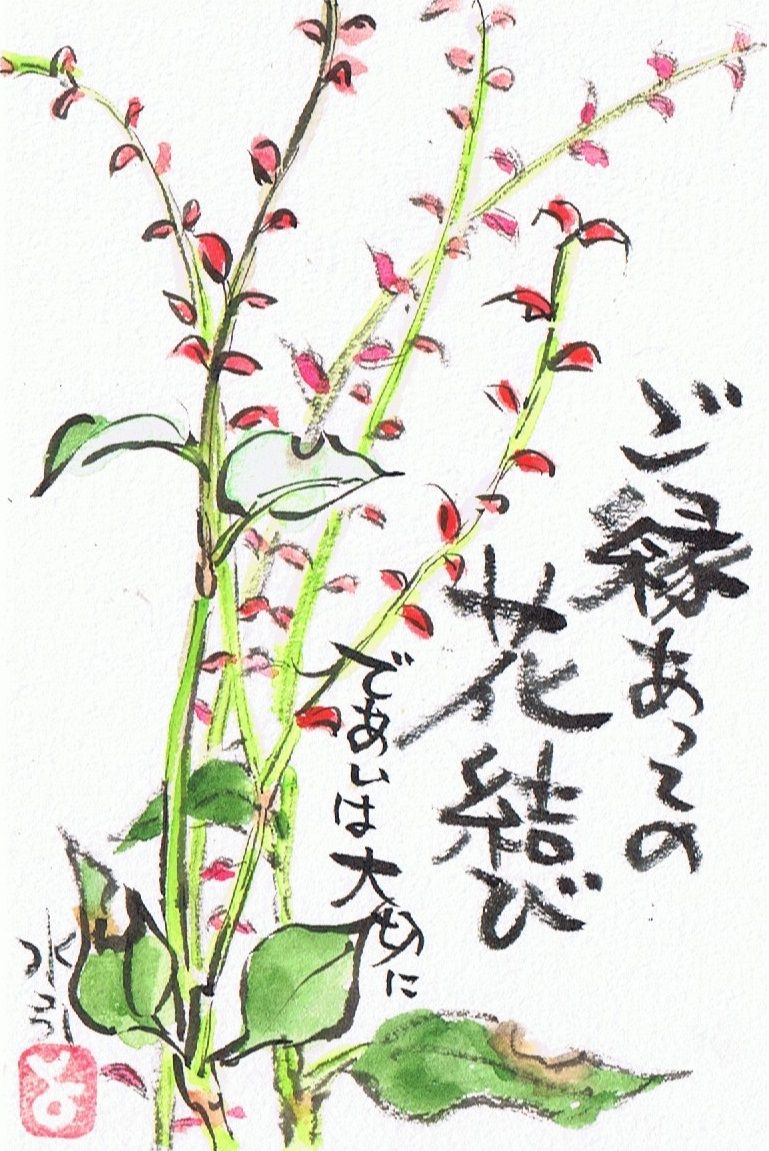 ご縁あっての
花結び
であいは大切に
水引
よ